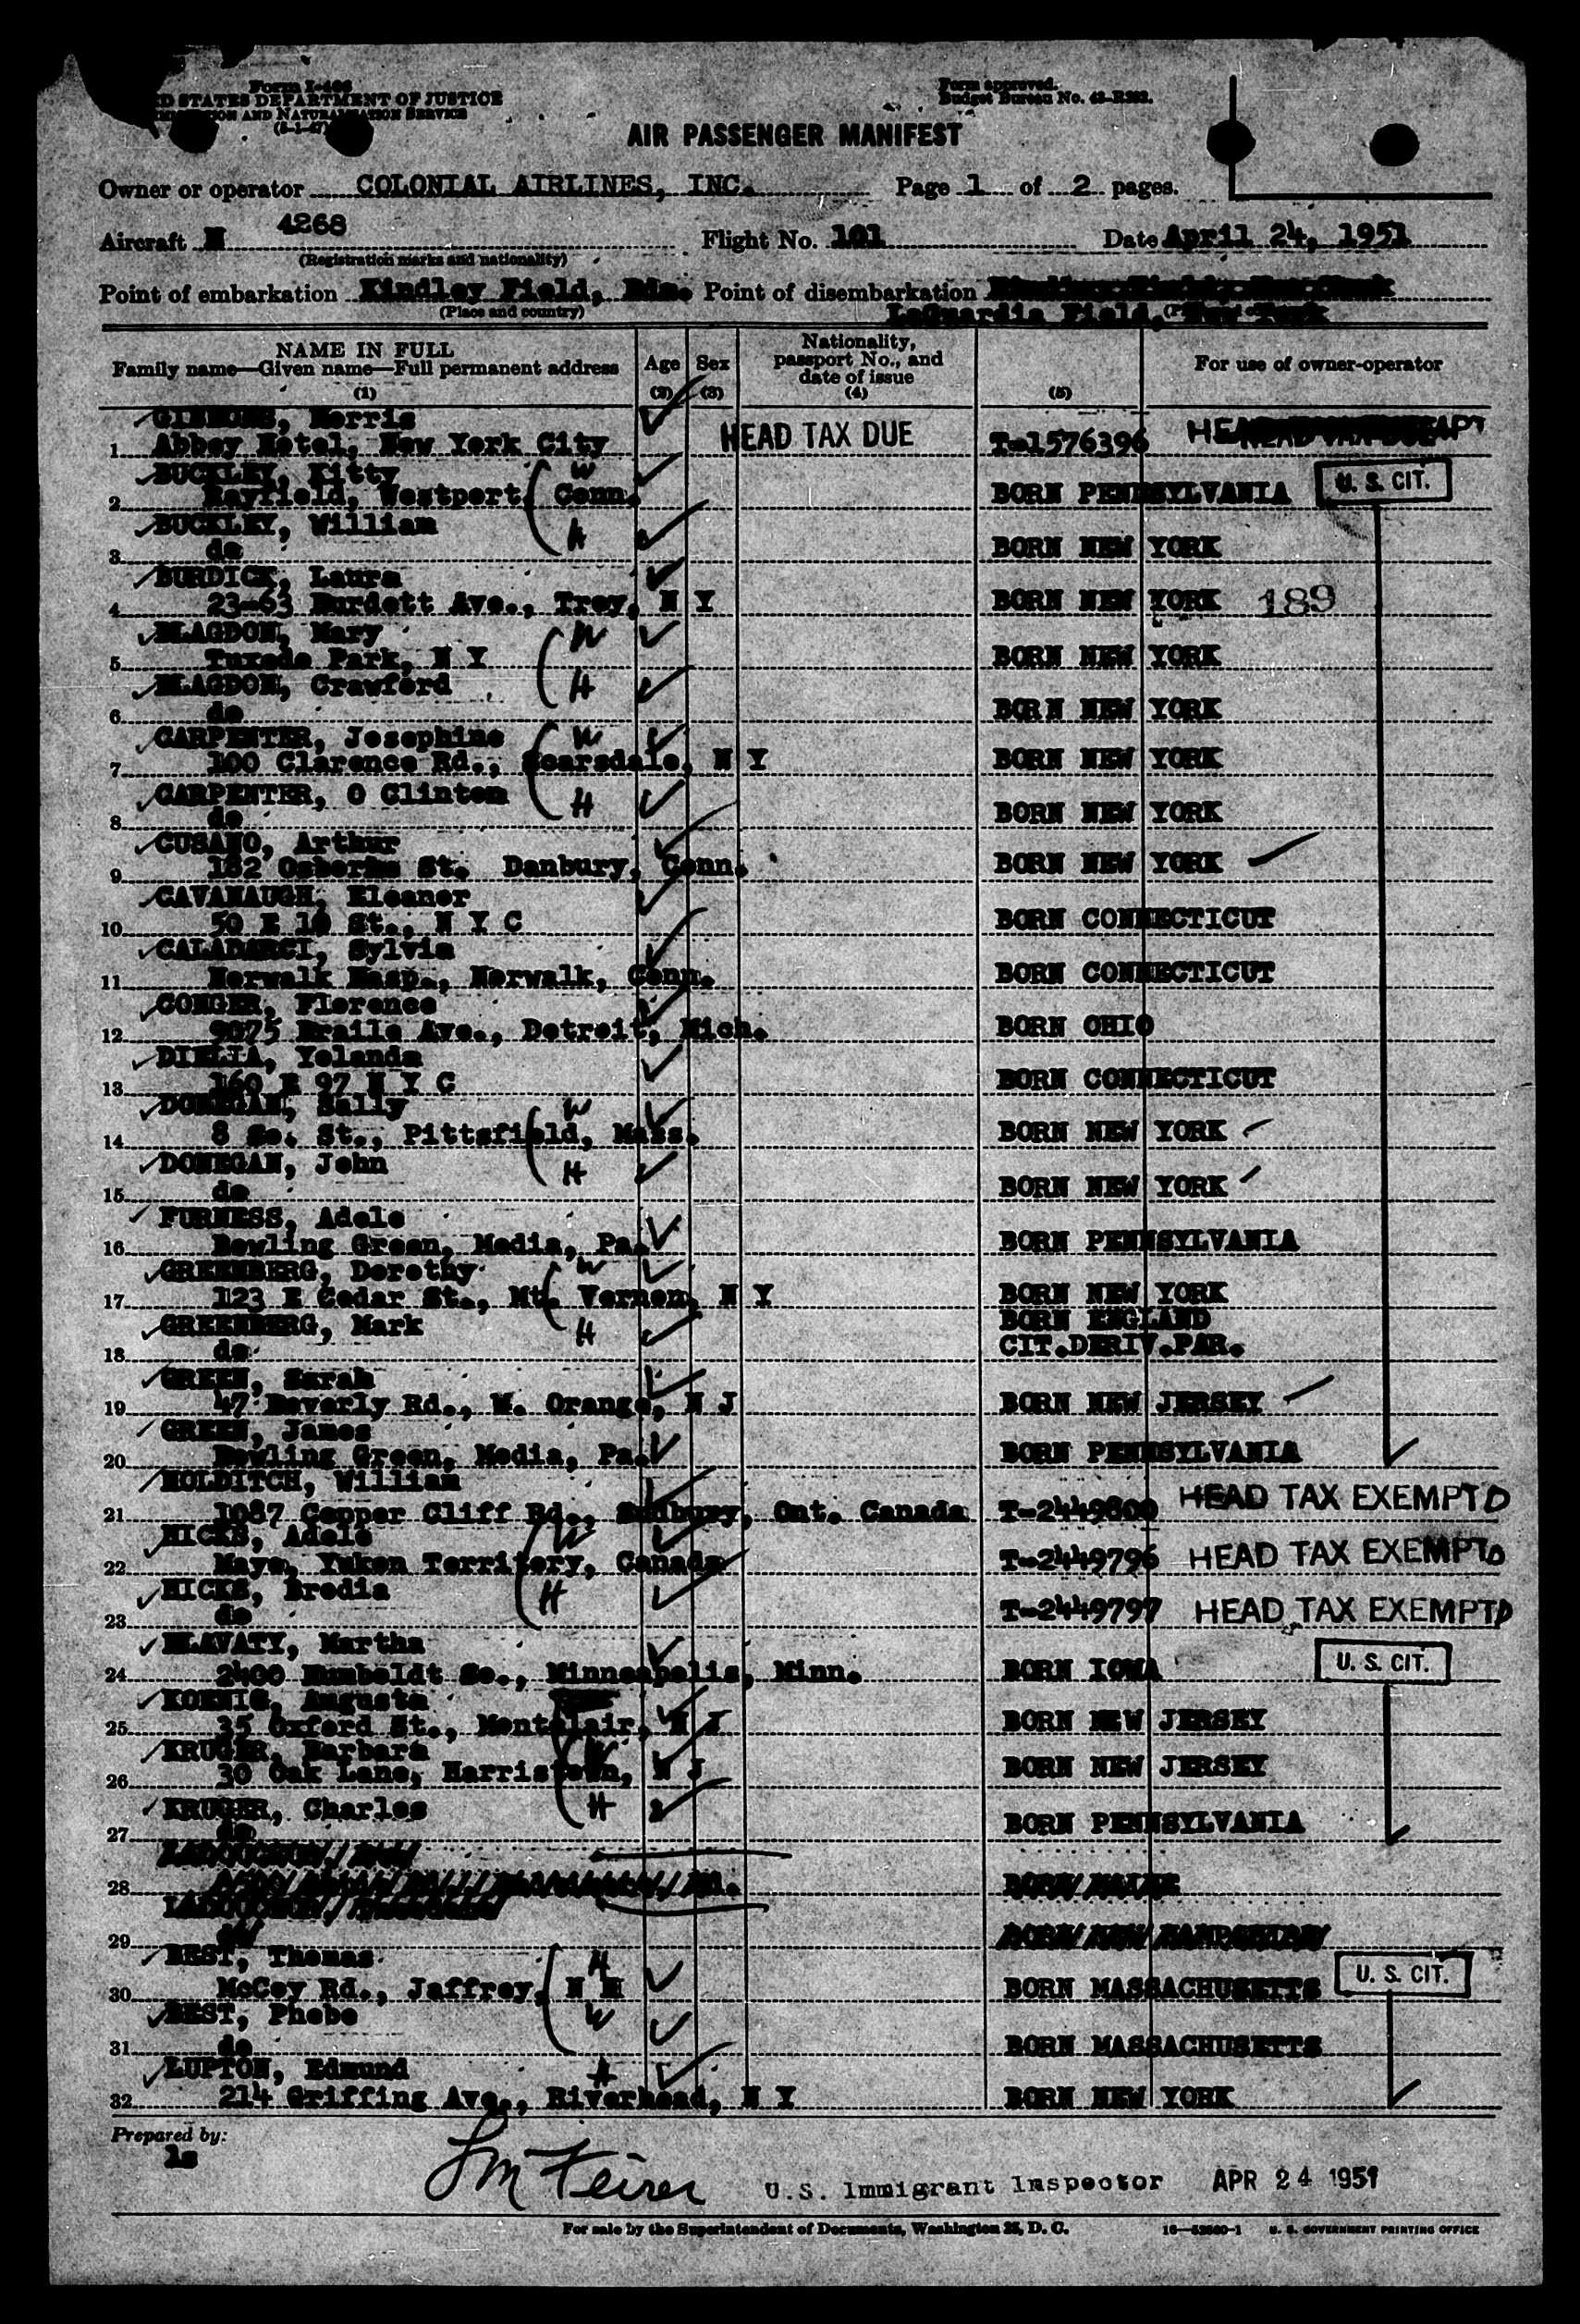 Form I-466
D STATES DEPARTMENT OF JUSTICE
ION AND NATURALIZATION SERVICE
(5-1-47)
Form approved.
Budget Bureau No. 43-R393.
AIR PASSENGER MANIFEST
Owner or operator COLONIAL AIRLINES, INC. Page 1 of 2 pages.
Aircraft N 4268 Flight No. 101 Date April 24, 1951
(Registration marks and nationality)
Point of embarkation Kindley Field, Bda. Point of disembarkation
(Place and country) LaGuardia Field, New York
NAME IN FULL
Family name—Given name—Full permanent address
(1)
Age
(2)
Sex
(3)
Nationality,
passport No., and
date of issue
(4)
(5)
For use of owner-operator
GIBBONS, Morris
1 Abbey Hotel, New York City HEAD TAX DUE T-1576396
BUCKLEY, Kitty W
2 Rayfield, Westport, Conn. BORN PENNSYLVANIA U. S. CIT.
BUCKLEY, William
3 do H BORN NEW YORK
BURDICK, Laura
4 23-63 Burdett Ave., Troy, N Y BORN NEW YORK 189
BLAGDON, Mary W
5 Tuxedo Park, N Y BORN NEW YORK
BLAGDON, Crawford H
6 do BORN NEW YORK
CARPENTER, Josephine W
7 100 Clarence Rd., Scarsdale, N Y BORN NEW YORK
CARPENTER, O Clinton H
8 do BORN NEW YORK
CUSANO, Arthur
9 182 Osborne St. Danbury, Conn. BORN NEW YORK
CAVANAUGH, Eleanor
10 50 E 10 St., N Y C BORN CONNECTICUT
CALADARCI, Sylvia
11 Norwalk Hosp., Norwalk, Conn. BORN CONNECTICUT
CONGER, Florence
12 9075 Braile Ave., Detroit, Mich. BORN OHIO
DIELIA, Yolanda
13 160 E 97 N Y C BORN CONNECTICUT
DONEGAN, Sally W
14 8 So. St., Pittsfield, Mass. BORN NEW YORK
DONEGAN, John H
15 do BORN NEW YORK
FURNESS, Adele
16 Bowling Green, Media, Pa. BORN PENNSYLVANIA
GREENBERG, Dorothy W
17 123 E Cedar St., Mt. Vernon, N Y BORN NEW YORK
GREENBERG, Mark H BORN ENGLAND
18 do CIT.DERIV.PAR.
GREEN, Sarah
19 47 Beverly Rd., W. Orange, N J BORN NEW JERSEY
GREEN, James
20 Bowling Green, Media, Pa. BORN PENNSYLVANIA
HOLDITCH, William
21 1087 Copper Cliff Rd., Sudbury, Ont. Canada T-2449800 HEAD TAX EXEMPTD
HICKS, Adele W
22 Mayo, Yukon Territory, Canada T-2449796 HEAD TAX EXEMPTD
HICKS, Bredia H
23 do T-2449797 HEAD TAX EXEMPTD
HLAVATY, Martha
24 2400 Humboldt So., Minneapolis, Minn. BORN IOWA U. S. CIT.
KOENIG, Augusta
25 35 Oxford St., Montclair, N J BORN NEW JERSEY
KRUGER, Barbara W
26 30 Oak Lane, Morristown, N J BORN NEW JERSEY
KRUGER, Charles H
27 do BORN PENNSYLVANIA
28 BORN MAINE
29 BORN NEW HAMPSHIRE
BEST, Thomas H
30 McCoy Rd., Jaffrey, N H BORN MASSACHUSETTS U. S. CIT.
BEST, Phebe W
31 do BORN MASSACHUSETTS
LUPTON, Edmund
32 214 Griffing Ave., Riverhead, N Y BORN NEW YORK
Prepared by:
ls
U.S. Immigrant Inspector APR 24 1951
For sale by the Superintendent of Documents, Washington 25, D. C. U. S. GOVERNMENT PRINTING OFFICE